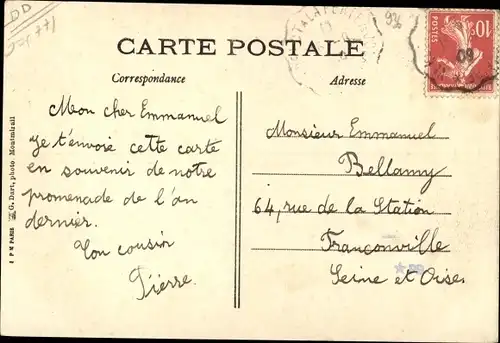 DD
CARTE POSTALE
Correspondance
Adresse
POSTES
10c
09
Mon cher Emmanuel
Je t'envoie cette carte
en souvenir de notre
promenade de l'an
dernier.
Ton cousin
Pierre.
Monsieur Emmanuel
Bellamy
64, rue de la Station
Franconville
Seine et Oise
G. Dart, photo Montmirail